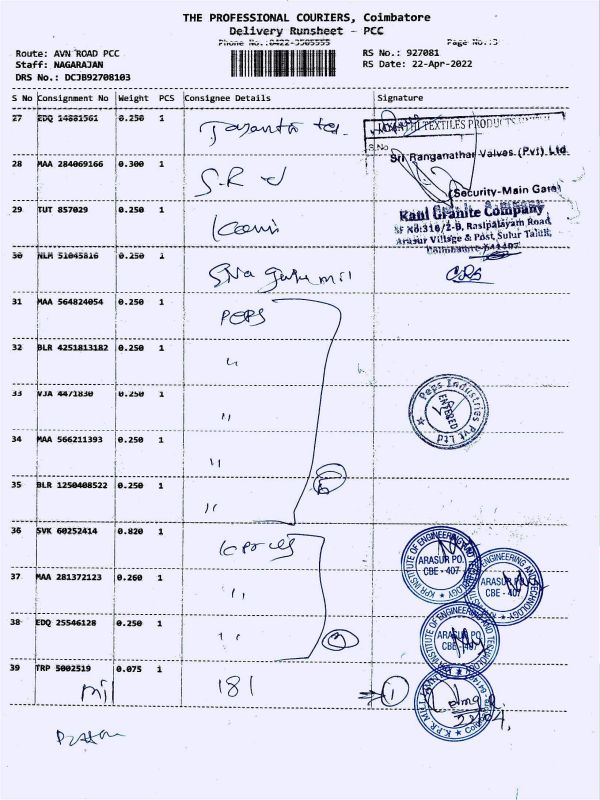 THE PROFESSIONAL COURIERS, Coimbatore
Delivery Runsheet - PCC
Phone No.:0422-3505555 Page No.:3
Route: AVN ROAD PCC RS No.: 927081
Staff: NAGARAJAN RS Date: 22-Apr-2022
DRS No.: DCJB92708103
S No Consignment No Weight PCS Consignee Details Signature
27 EDQ 14881561 0.250 1
TEXTILES PRODUCTS
S.No
Sri Ranganathar Valves (Pvt) Ltd
28 MAA 284069166 0.300 1
(Security-Main Gate)
29 TUT 857029 0.250 1
Kani Granite Company
SF No:316/2-B, Rasipalayam Road,
Arasur Village & Post, Sulur Taluk,
Coimbatore-641407
30 NLM 51045816 0.250 1
31 MAA 564824054 0.250 1 PEPS
32 BLR 4251813182 0.250 1 "
33 VJA 4471830 0.250 1 "
Peps Industries Pvt Ltd
ENTERED
34 MAA 566211393 0.250 1 "
35 BLR 1250408522 0.250 1 "
5
36 SVK 60252414 0.820 1
KPR INSTITUTE OF ENGINEERING AND TECHNOLOGY
ARASUR PO.
CBE - 407
37 MAA 281372123 0.260 1 "
ENGINEERING AND TECHNOLOGY
ARASUR PO.
CBE - 407
38 EDQ 25546128 0.250 1 "
KPR INSTITUTE OF ENGINEERING AND TECHNOLOGY
ARASUR PO.
CBE - 407
3
39 TRP 5002519 0.075 1 181
mil
1
K.P.R. MILL